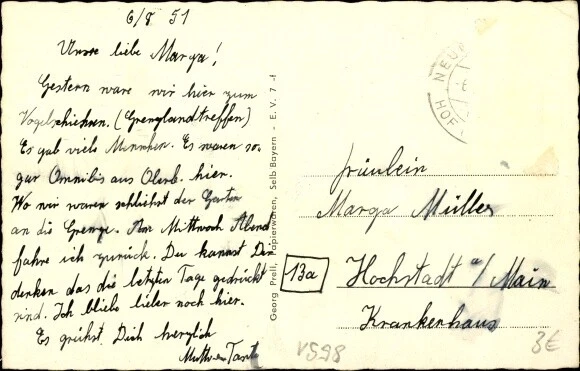 6/8 51
Unsre liebe Marga!
Gestern ware wir hier zum
Vogelschiehsen. (Grenzlandtreffen)
Es gab viele Mennschen. Es waren so-
gar Omnibis aus Oberb. hier.
Wo wir waren schliehst der Garten
an die Grenze. Am Mittwoch Abend
fahre ich zurück. Du kannst Dir
denken das die letzten Tage gedrückt
sind. Ich bliebe lieber noch hier.
Es grühst Dich herzlich
Mutter Tante
Georg Prell, Papierwaren, Selb Bayern - E. V. 7
NEU
HOF
Fräulein
Marga Müller
13a
Hochstadt a/Main
Krankenhaus
V598
3€